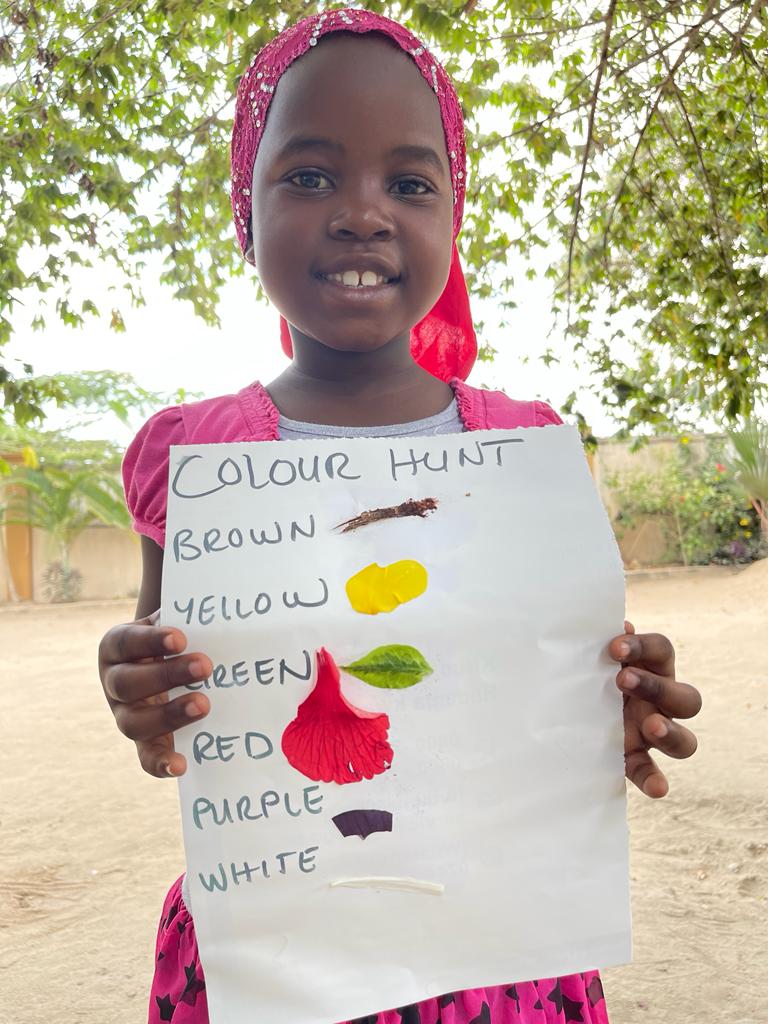 COLOUR HUNT
BROWN
YELLOW
GREEN
RED
PURPLE
WHITE